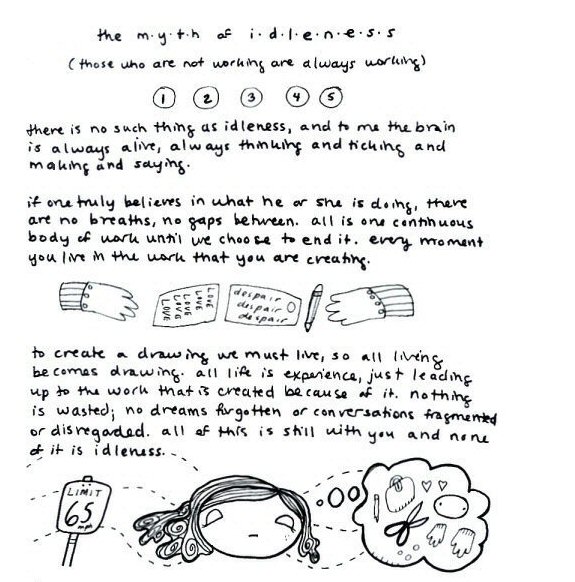 the m·y·t·h of i·d·l·e·n·e·s·s
(those who are not working are always working)
1 2 3 4 5
there is no such thing as idleness, and to me the brain
is always alive, always thinking and ticking and
making and saying.
if one truly believes in what he or she is doing, there
are no breaths, no gaps between. all is one continuous
body of work until we choose to end it. every moment
you live in the work that you are creating.
LOVE LOVE LOVE LOVE LOVE
despair
despair
despair
to create a drawing we must live, so all living
becomes drawing. all life is experience, just leading
up to the work that is created because of it. nothing
is wasted; no dreams forgotten or conversations fragmented
or disregaded. all of this is still with you and none
of it is idleness.
LIMIT
65
mph